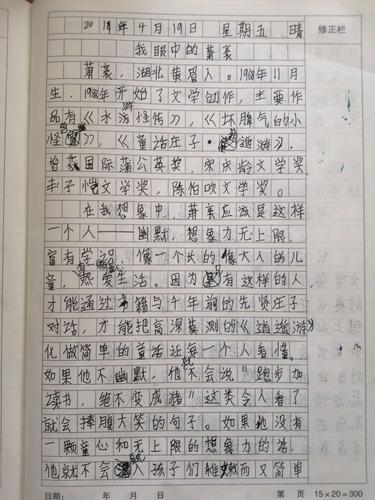 2018年4月19日 星期五 晴
修正栏
我眼中的萧袤
萧袤,湖北黄冈人。1968年11月
生。1986年开始了文学创作,主要作
品有《水浒怪传》,《坏脾气的小
怪》,《童话庄子·逍遥游》。
曾获国际蒲公英奖,宋庆龄文学奖,
丰子恺文学奖,陈伯吹文学奖。
在我想象中,萧袤应该是这样
一个人——幽默,想象力无上限,
富有学识,像一个长的像大人的儿
童,热爱生活。因为有这样的人
才能通过书籍与千年前的先贤庄子
对话,才能把高深莫测的《逍遥游》
化做简单的童话让每一个人看懂。
如果他不幽默,他就不会说“跑步加
读书,绝不变成猪”这类令人看了
就会捧腹大笑的句子。如果他没有
一颗童心和无上限的想象力的话,
他就不会 孩子们 而又简单
日期: 年 月 日 第 页 15×20=300